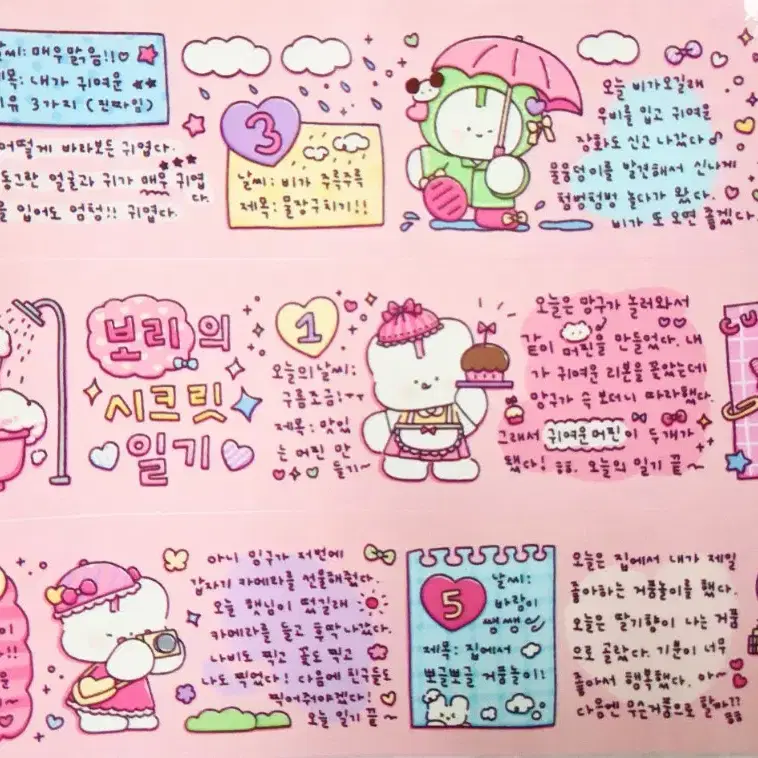 날씨: 매우맑음!!
제목: 내가 귀여운
이유 3가지 (진짜임)
어떻게 바라보든 귀엽다.
동그란 얼굴과 귀가 매우 귀엽
다.
을 입어도 엄청!! 귀엽다.
3
날씨: 비가 주룩주룩
제목: 물장구치기!!
오늘 비가오길래
우비를 입고 귀여운
장화도 신고 나갔다
물웅덩이를 발견해서 신나게
첨벙첨벙 놀다가 왔다.
비가 또 오면 좋겠다.
보리의
시크릿
일기
1
오늘의날씨:
구름조금!ㅋㅋ
제목: 맛있
는 머핀 만
들기~
오늘은 망구가 놀러와서
같이 머핀을 만들었다. 내
가 귀여운 리본을 꽂았는데
망구가 슥 보더니 따라했다.
그래서 귀여운머핀이 두개가
됐다! ㅎㅎ. 오늘의 일기 끝~
아니 밍구가 저번에
갑자기 카메라를 선물해줬다.
오늘 햇님이 떴길래
카메라를 들고 후딱 나갔다.
나비도 찍고 꽃도 찍고
나도 찍었다! 다음에 친구들도
찍어줘야겠다!
오늘 일기 끝~
5
날씨:
바람이
쌩쌩
제목: 집에서
뽀글뽀글 거품놀이!
오늘은 집에서 내가 제일
좋아하는 거품놀이를 했다.
오늘은 딸기향이 나는 거품
으로 골랐다. 기분이 너무
좋아서 행복했다. 아~
다음엔 무슨거품으로 할까??
ㅎㅎ